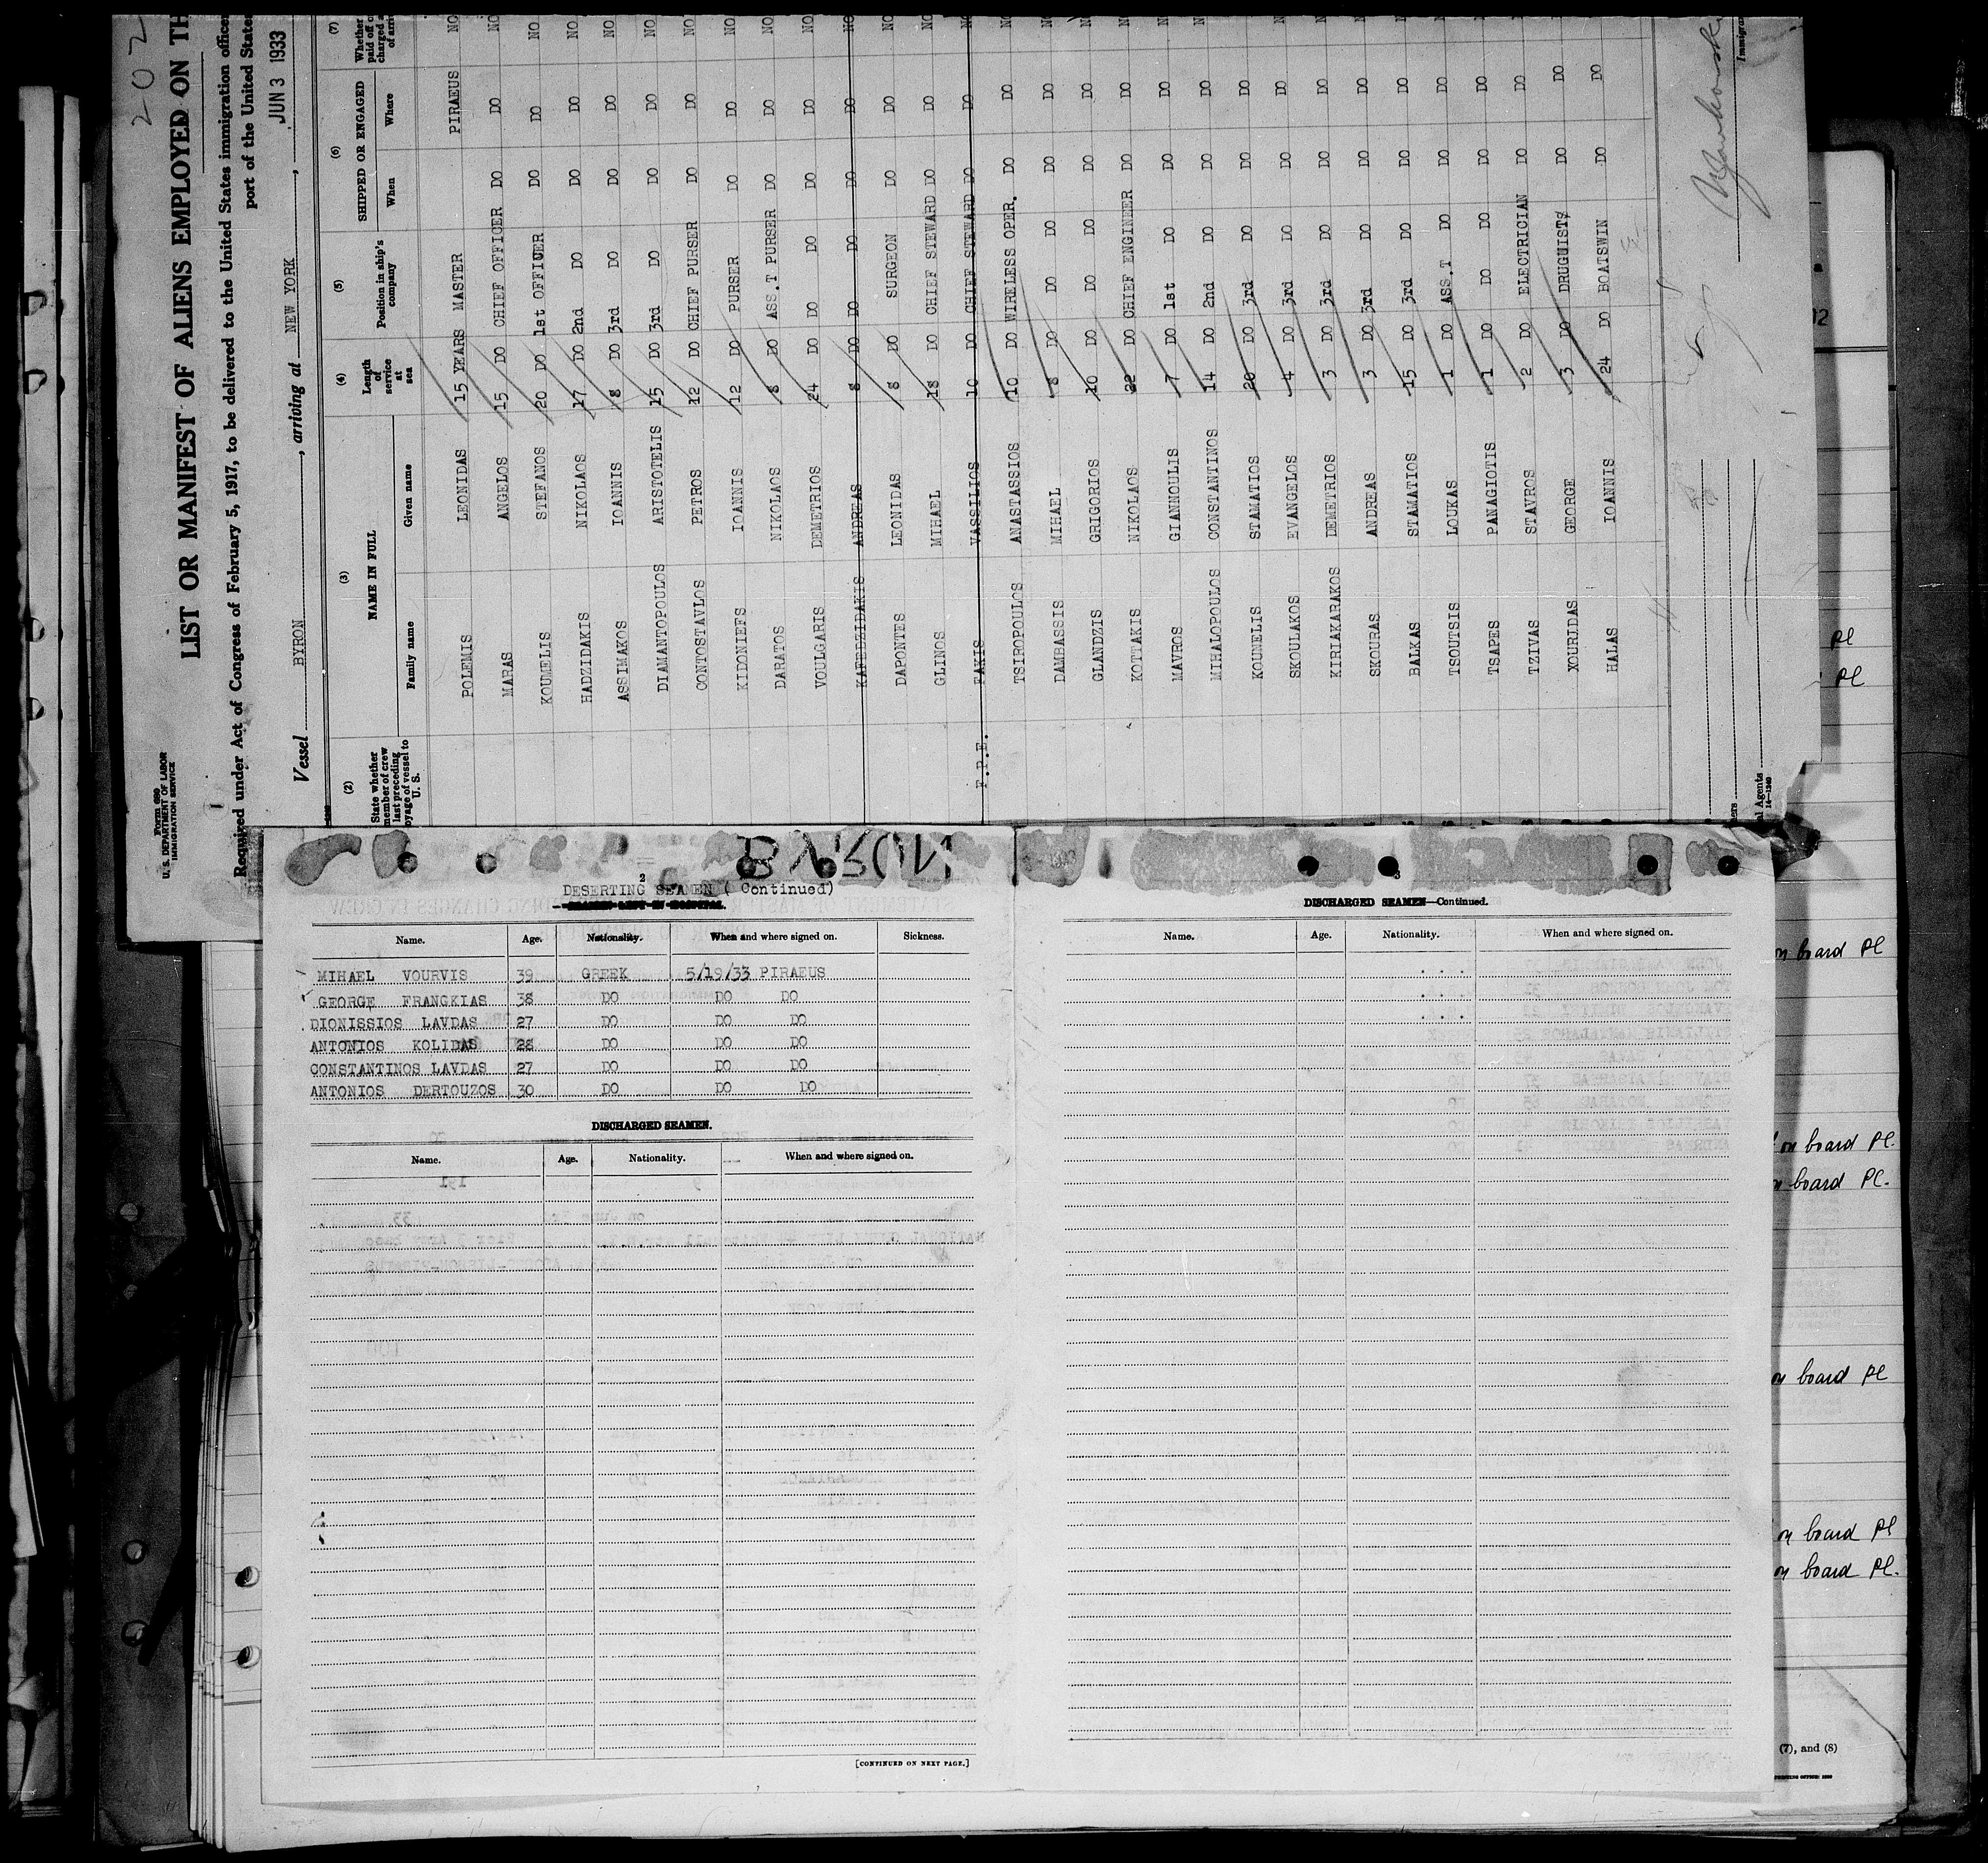 202
Form 689
U. S. DEPARTMENT OF LABOR
IMMIGRATION SERVICE
LIST OR MANIFEST OF ALIENS EMPLOYED ON TH
Required under Act of Congress of February 5, 1917, to be delivered to the United States immigration officer
port of the United States
Vessel BYRON, arriving at NEW YORK, JUN 3 1933
(2) (3) (4) (5) (6) (7)
State whether member of crew last preceding voyage of vessel to U. S. NAME IN FULL Family name Given name Length of service at sea Position in ship's company SHIPPED OR ENGAGED When Where Whether paid off or
POLEMIS LEONIDAS 15 YEARS MASTER PIRAEUS NO
MARAS ANGELOS 15 DO CHIEF OFFICER DO DO NO
KOUMELIS STEFANOS 20 DO 1st OFFICER DO DO NO
HADZIDAKIS NIKOLAOS 17 DO 2nd DO DO DO NO
ASSIMAKOS IOANNIS 8 DO 3rd DO DO DO NO
DIAMANTOPOULOS ARISTOTELIS 15 DO 3rd DO DO DO NO
CONTOSTAVLOS PETROS 12 DO CHIEF PURSER DO DO NO
KIDONIEFS IOANNIS 12 DO PURSER DO DO NO
DARATOS NIKOLAOS 8 DO ASS.T PURSER DO DO NO
VOULGARIS DEMETRIOS 24 DO DO DO DO DO NO
KAFEDZIDAKIS ANDREAS 8 DO DO DO DO DO NO
DAPONTES LEONIDAS 8 DO SURGEON DO DO NO
GLINOS MIHAEL 18 DO CHIEF STEWARD DO DO NO
F.P.E. FAKIS VASSILIOS 10 DO CHIEF STEWARD DO DO NO
TSIROPOULOS ANASTASSIOS 10 DO WIRELESS OPER. DO DO NO
DAMBASSIS MIHAEL 8 DO DO DO DO DO N
GLANDZIS GRIGORIOS 10 DO DO DO DO DO N
KOTTAKIS NIKOLAOS 22 DO CHIEF ENGINEER DO DO N
MAVROS GIANNOULIS 7 DO 1st DO DO DO N
MIHALOPOULOS CONSTANTINOS 14 DO 2nd DO DO DO N
KOUNELIS STAMATIOS 20 DO 3rd DO DO DO
SKOULAKOS EVANGELOS 4 DO 3rd DO DO DO N
KIRIAKARAKOS DEMETRIOS 3 DO 3rd DO DO DO N
SKOURAS ANDREAS 3 DO 3rd DO DO DO N
BALKAS STAMATIOS 15 DO 3rd DO DO DO N
TSOUTSIS LOUKAS 1 DO ASS.T DO DO DO N
TSAPES PANAGIOTIS 1 DO DO DO DO DO N
TZIVAS STAVROS 2 DO ELECTRICIAN DO DO N
XOURIDAS GEORGE 3 DO DRUGUISTS DO DO N
HALAS IOANNIS 24 DO BOATSWIN DO DO N
al Agents
14—1240
Immigran
BYRON
2
DESERTING SEAMEN ( Continued)
SEAMEN LEFT IN HOSPITAL.
Name. Age. Nationality. When and where signed on. Sickness.
MIHAEL VOURVIS 39 GREEK 5/19/33 PIRAEUS
GEORGE FRANGKIAS 38 DO DO DO
DIONISSIOS LAVDAS 27 DO DO DO
ANTONIOS KOLIDAS 28 DO DO DO
CONSTANTINOS LAVDAS 27 DO DO DO
ANTONIOS DERTOUZOS 30 DO DO DO
DISCHARGED SEAMEN.
Name. Age. Nationality. When and where signed on.
[CONTINUED ON NEXT PAGE.]
3
DISCHARGED SEAMEN—Continued.
Name. Age. Nationality. When and where signed on.
02
Pl
Pl
on board Pl
on board Pl.
board Pl.
on board Pl
on board Pl
on board Pl.
(7), and (8)